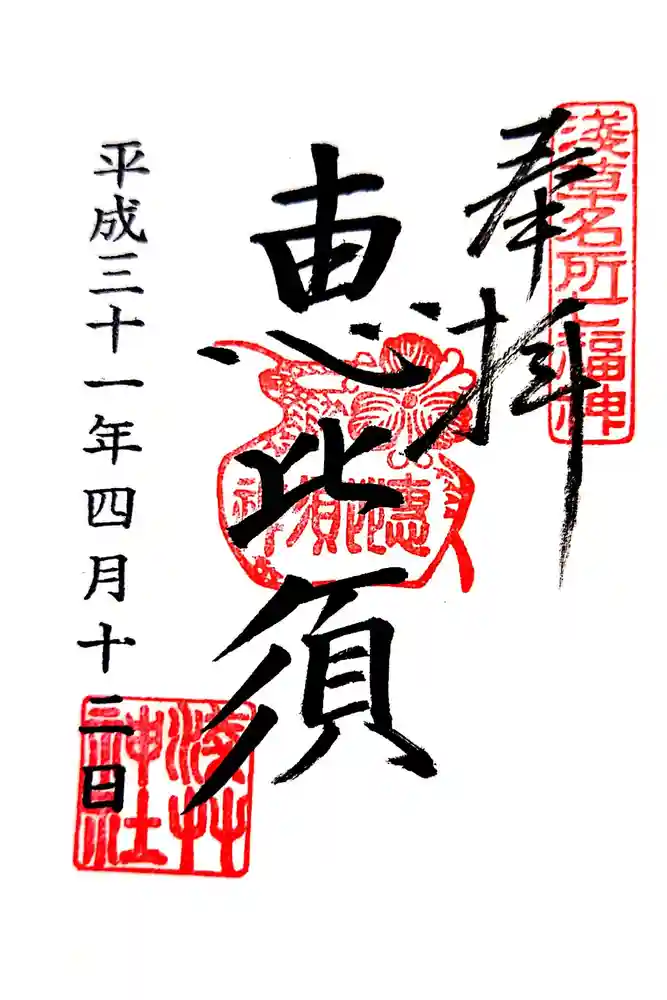 浅草名所七福神
奉拝
恵比須
恵比須神
平成三十一年四月十二日
浅草神社